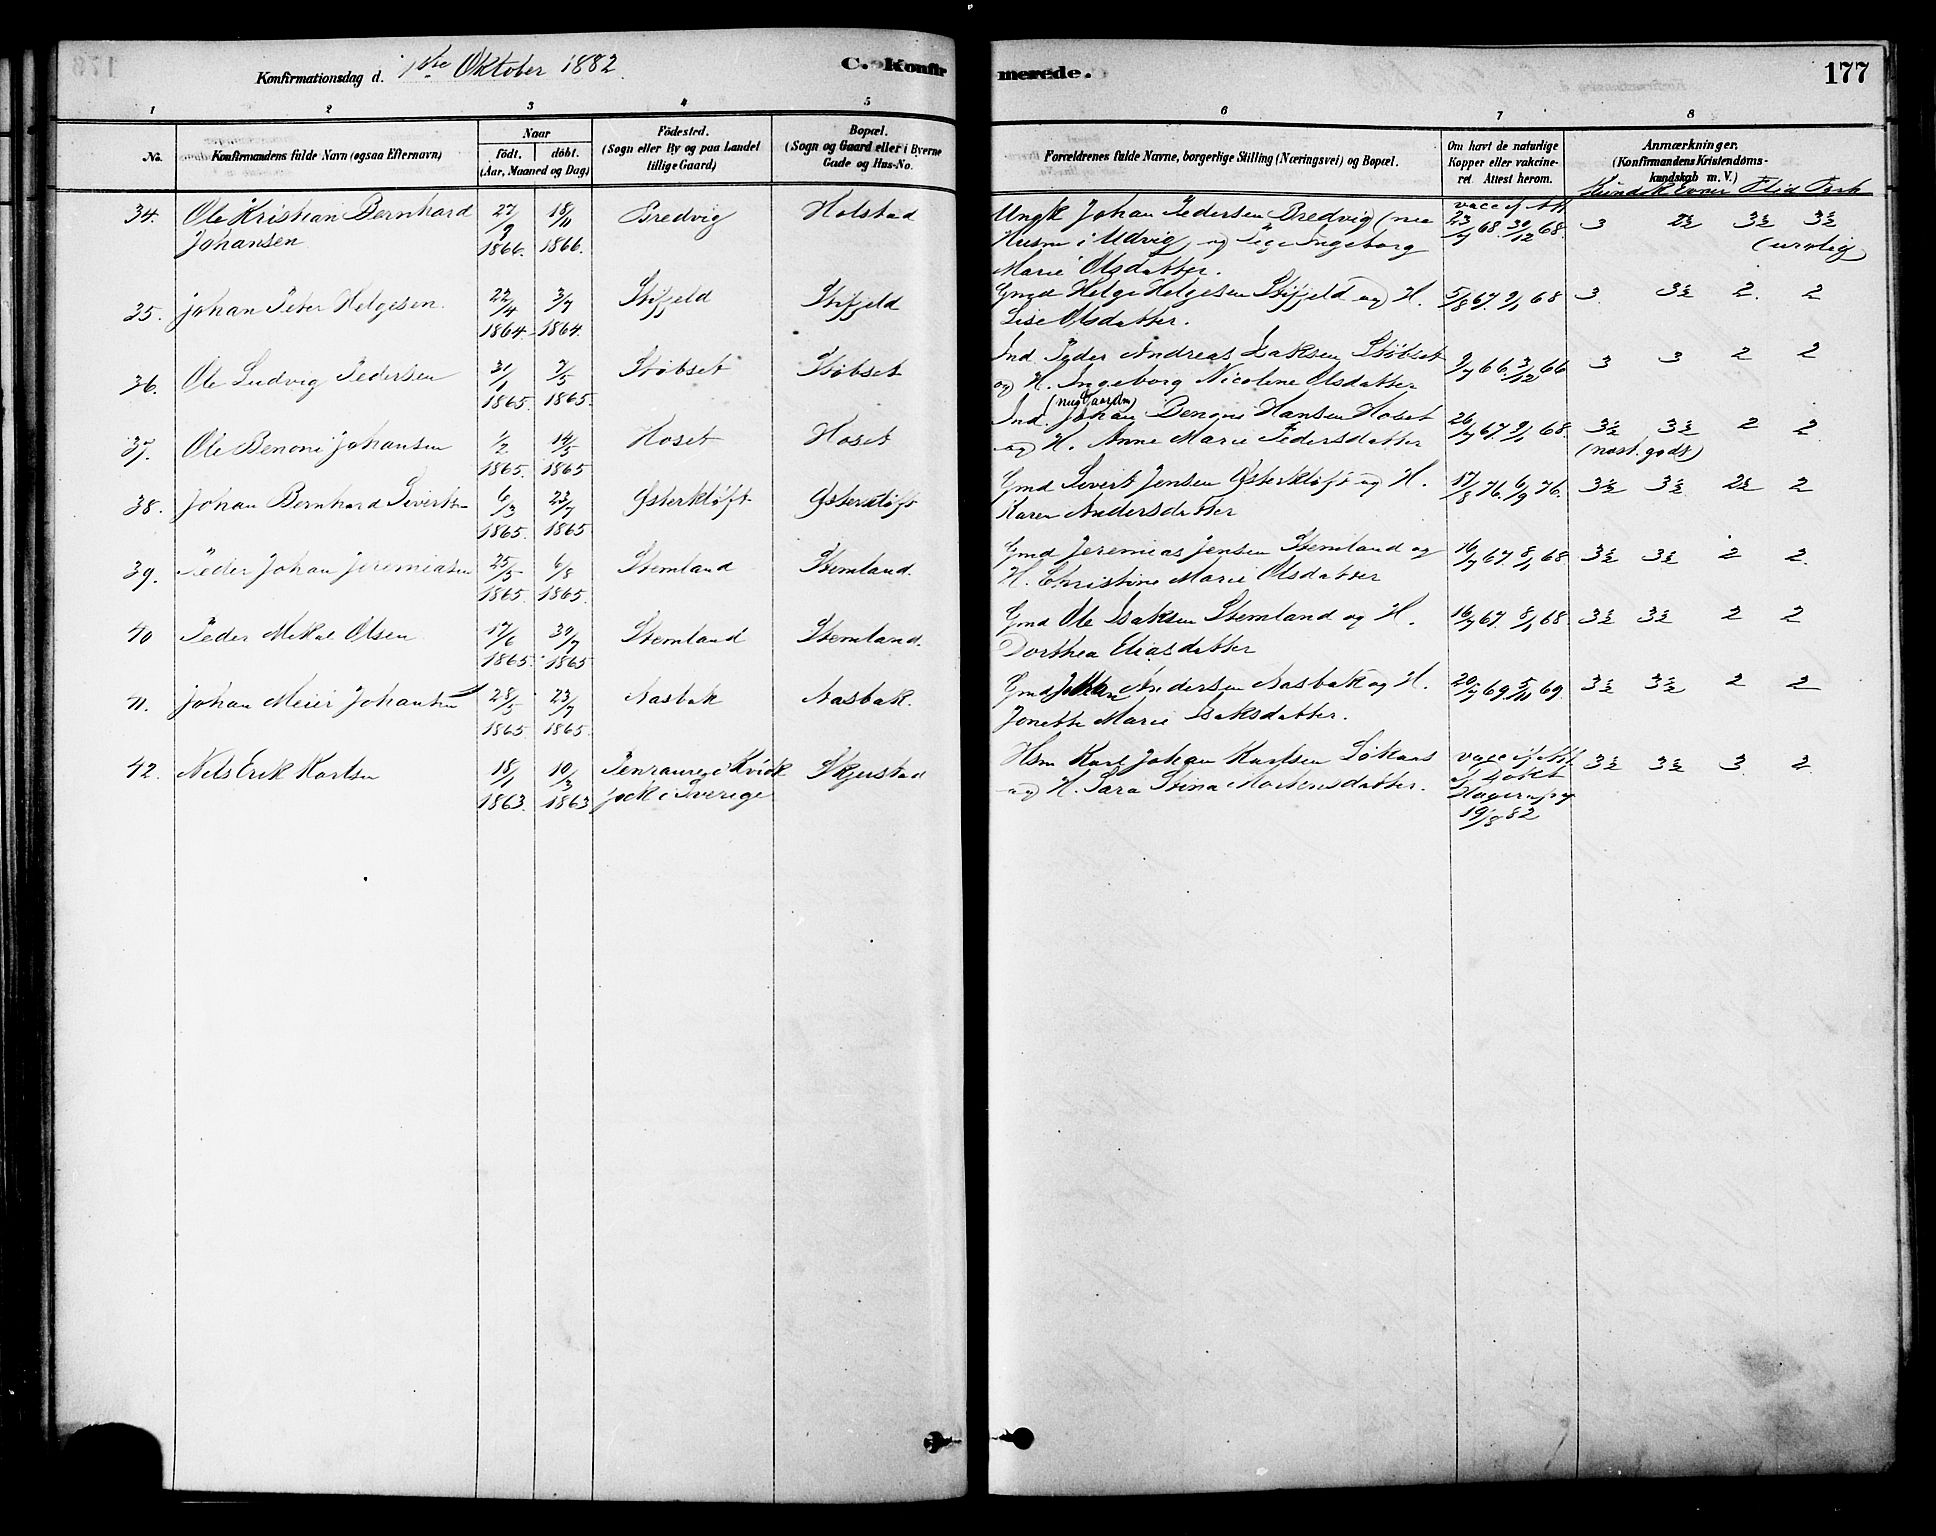 Konfirmationsdag d. 1ste Oktober 1882. C. Konfirmerede. 177
1 2 3 4 5 6 7 8
No. Konfirmandens fulde Navn (ogsaa Efternavn) Naar Födt. döbt. (Aar, Maaned og Dag) Födested. (Sogn eller By og paa Landet tillige Gaard) Bopæl. (Sogn og Gaard eller i Byerne Gade og Hus-No. Forældrenes fulde Navne, borgerlige Stilling (Næringsvei) og Bopæl. Om havt de naturlige Kopper eller vakcineret. Attest herom. Anmærkninger. (Konfirmandens Kristendomskundskab m. V.)
Kundsk Evner Flid
34. Ole Kristian Bernhard 27/9 18/11 Bredvig Holstad Ungk Johan Pedersen Bredvig (nu vacc if Att 23/7 68. 30/12 68. 3 2½ 3½ 3½
Johansen 1866. 1866. Husm i Udvig) og Pige Ingeborg (urolig)
Marie Olsdatter.
35. Johan Peter Helgesen. 22/4 3/7 Stifjeld Stifjeld Gmd Helge Helgesen Stifjeld og H. 5/8 67. 9/1 68 3. 3½ 2. 2
1864. 1864. Lise Olsdatter.
36. Ole Ludvig Pedersen 31/1 7/5 Støbset Støbset Ind. Peder Andreas Isaksen Støbset 9/7 66. 3/12 66 3 3 2 2
1865. 1865. og H. Ingeborg Nicoline Olsdatter
37. Ole Benoni Johansen 1/2 14/5 Hoset Hoset Ind. (nu Gaardm) Johan Benoni Hansen Hoset 26/7 67. 9/1 68. 3½ 3½ 2 2
1865. 1865 og H. Anne Marie Pedersdatter (næst. godt)
38. Johan Bernhard Sivertsen 6/3 23/7 Østerkløft Østerkløft Gmd Sivert Jensen Østerkløft og H. 17/8 76. 6/9 76. 3½ 3½ 2½ 2
1865. 1865 Karen Andersdatter
39. Peder Johan Jeremiasen 25/5 6/8 Stemland Stemland. Gmd Jeremias Jensen Stemland og 16/7 67. 8/1 68 3½ 3½ 2 2.
1865. 1865. H. Christine Marie Olsdatter
40 Peder Mikal Olsen 17/6 30/7 Stemland Stemland. Gmd Ole Isaksen Stemland og H. 16/7 67. 8/1 68 3½ 3½ 2 2
1865. 1865 Dorthea Eliasdatter
41. Johan Meier Johansen 28/5 23/7 Nasbak Nasbak. Gmd Johan Andersen Nasbak og H. 20/7 69. 5/11 69. 3½ 3½ 2 2
1865 1865. Jonette Marie Isaksdatter.
42. Nils Erik Karlsen 18/1 10/3 i Kvick Skjerstad Hsm Karl Johan Karlsen vacc if Att 3½ 3½ 3 2
1863. 1863 jock i Sverige og H. Sara Stina Mortensdatter.
19/8 82